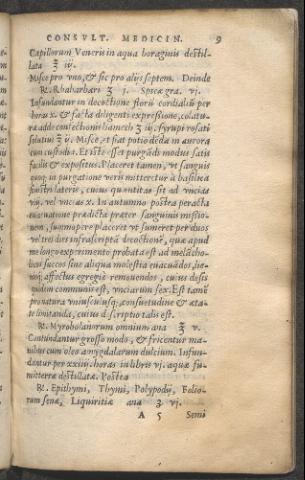 CONSVLT. MEDICIN. 9
Capillorum Veneris in aqua boraginis destil-
lata ℥ iij.
Misce pro vno, & sic pro alijs septem. Deinde
℞. Rhabarbari ʒ j. Spicæ gra. vj.
Infundantur in decoctione florū cordialiū per
horas x. & facta diligenti expressione, colatu-
ræ adde confectionis hamech ʒ iij. syrupi rosati
solutiui ℥ ij. Misce, et fiat potio dāda in aurora
cum custodia. Et iste est purgādi modus satis
facilis & expositus. Placeret tamen, vt sanguis
quoq; in purgatione veris mitteretur à basilica
sinistri lateris, cuius quantitas sit ad vncias
vij. vel vncias x. In autumno postea peracta
euacuatione prædicta præter sanguinis missio-
nem, summopere placeret vt sumeret per duos
vel tres dies infrascriptā decoctionē, quæ apud
me longo experimento probata est ad melācho-
licos succos siue aliqua molestia euacuādos, hu-
iusq; affectus egregiè remouendos, cuius desis
quidem communis est, vnciarum sex. Est tamē
pro natura vniuscuiusq; consuetudine & æta-
te limitanda, cuius descriptio talis est.
℞. Myrobolanorum omnium ana ʒ v.
Contundantur grosso modo, & fricentur ma-
nibus cum oleo amygdalarum dulcium. Infun-
dantur per xxiiij. horas in libris vj. aquæ fu-
miterræ destillatæ. Postea
℞. Epithymi, Thymi, Polypodij, Folio-
rum senæ, Liquiritiæ ana ʒ vj.
A 5 Semi